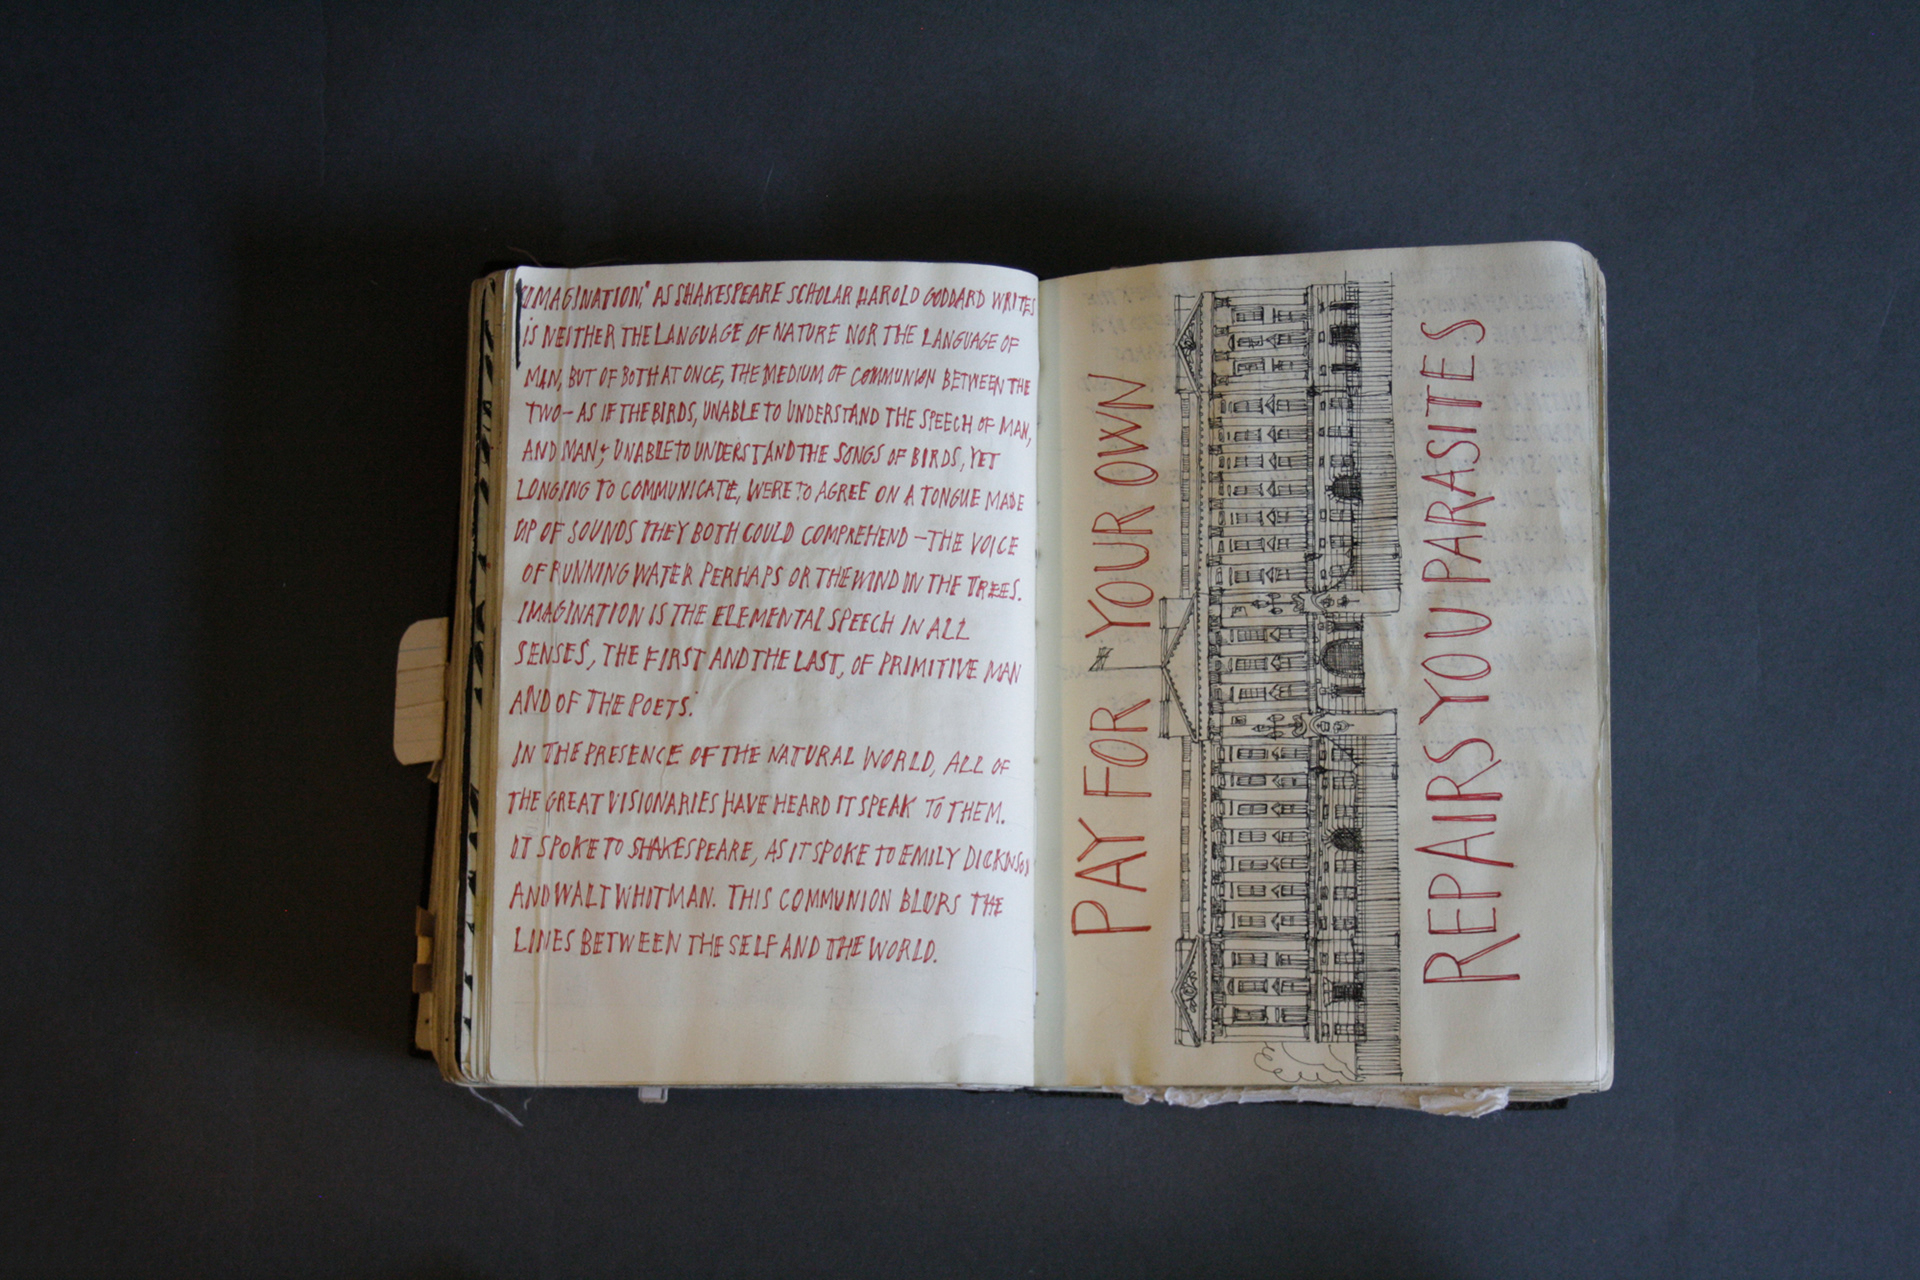 "IMAGINATION," AS SHAKESPEARE SCHOLAR HAROLD GODDARD WRITES
IS NEITHER THE LANGUAGE OF NATURE NOR THE LANGUAGE OF
MAN, BUT OF BOTH AT ONCE, THE MEDIUM OF COMMUNION BETWEEN THE
TWO – AS IF THE BIRDS, UNABLE TO UNDERSTAND THE SPEECH OF MAN,
AND MAN, UNABLE TO UNDERSTAND THE SONGS OF BIRDS, YET
LONGING TO COMMUNICATE, WERE TO AGREE ON A TONGUE MADE
UP OF SOUNDS THEY BOTH COULD COMPREHEND – THE VOICE
OF RUNNING WATER PERHAPS OR THE WIND IN THE TREES.
IMAGINATION IS THE ELEMENTAL SPEECH IN ALL
SENSES, THE FIRST AND THE LAST, OF PRIMITIVE MAN
AND OF THE POETS.'
IN THE PRESENCE OF THE NATURAL WORLD, ALL OF
THE GREAT VISIONARIES HAVE HEARD IT SPEAK TO THEM.
IT SPOKE TO SHAKESPEARE, AS IT SPOKE TO EMILY DICKINSON
AND WALT WHITMAN. THIS COMMUNION BLURS THE
LINES BETWEEN THE SELF AND THE WORLD.
PAY FOR YOUR OWN
REPAIRS YOU PARASITES